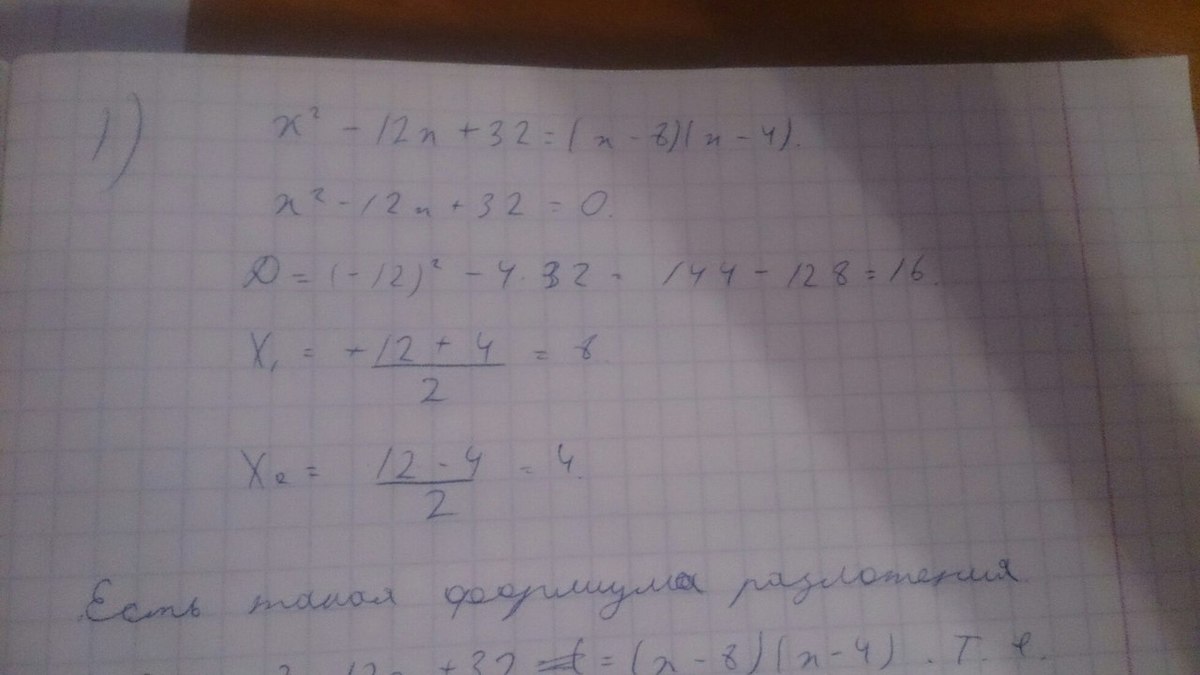 1) x² - 12x + 32 = (x - 8)(x - 4).
x² - 12x + 32 = 0.
D = (-12)² - 4·32 = 144 - 128 = 16.
X₁ = +12 + 4 / 2 = 8
X₂ = 12 - 4 / 2 = 4.
Есть такая формула разложения
x² - 12x + 32 = (x - 8)(x - 4). Т. е.